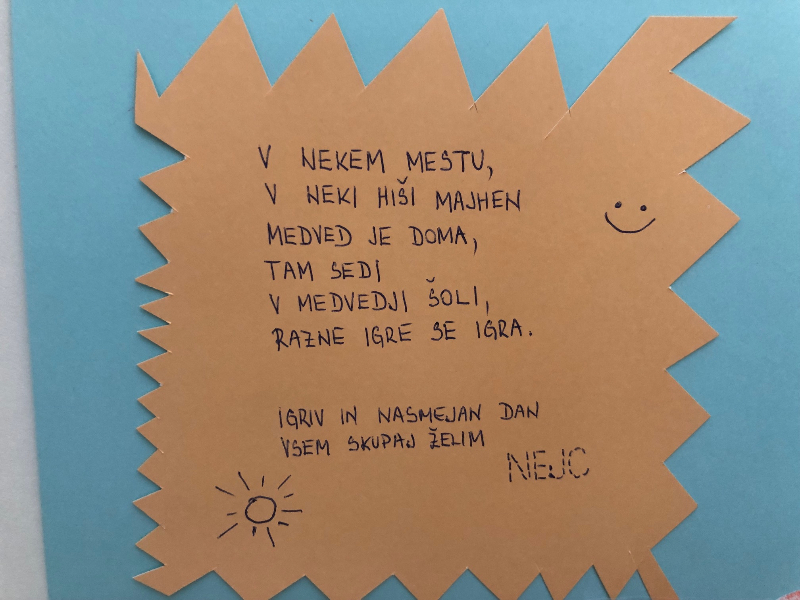 V NEKEM MESTU,
V NEKI HIŠI MAJHEN
MEDVED JE DOMA,
TAM SEDI
V MEDVEDJI ŠOLI,
RAZNE IGRE SE IGRA.
IGRIV IN NASMEJAN DAN
VSEM SKUPAJ ŽELIM
NEJC